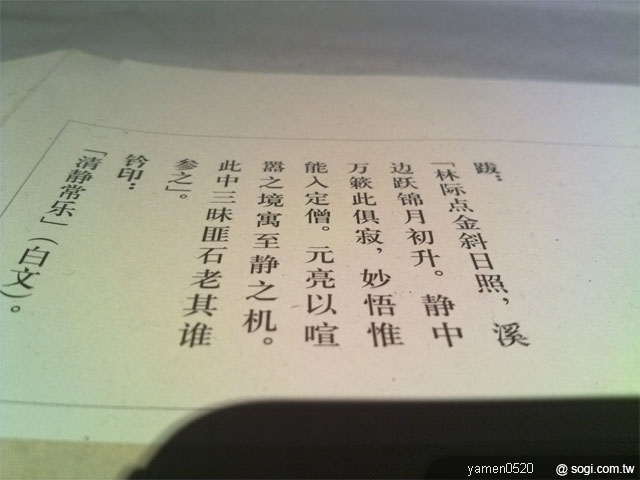 跋：
「林际点金斜日照，溪
边跃锦月初升。静中
万籁此俱寂，妙悟惟
能入定僧。元亮以喧
嚣之境寓至静之机。
此中三昧匪石老其谁
参之」。
钤印：
「清静常乐」（白文）。
yamen0520 @ sogi.com.tw